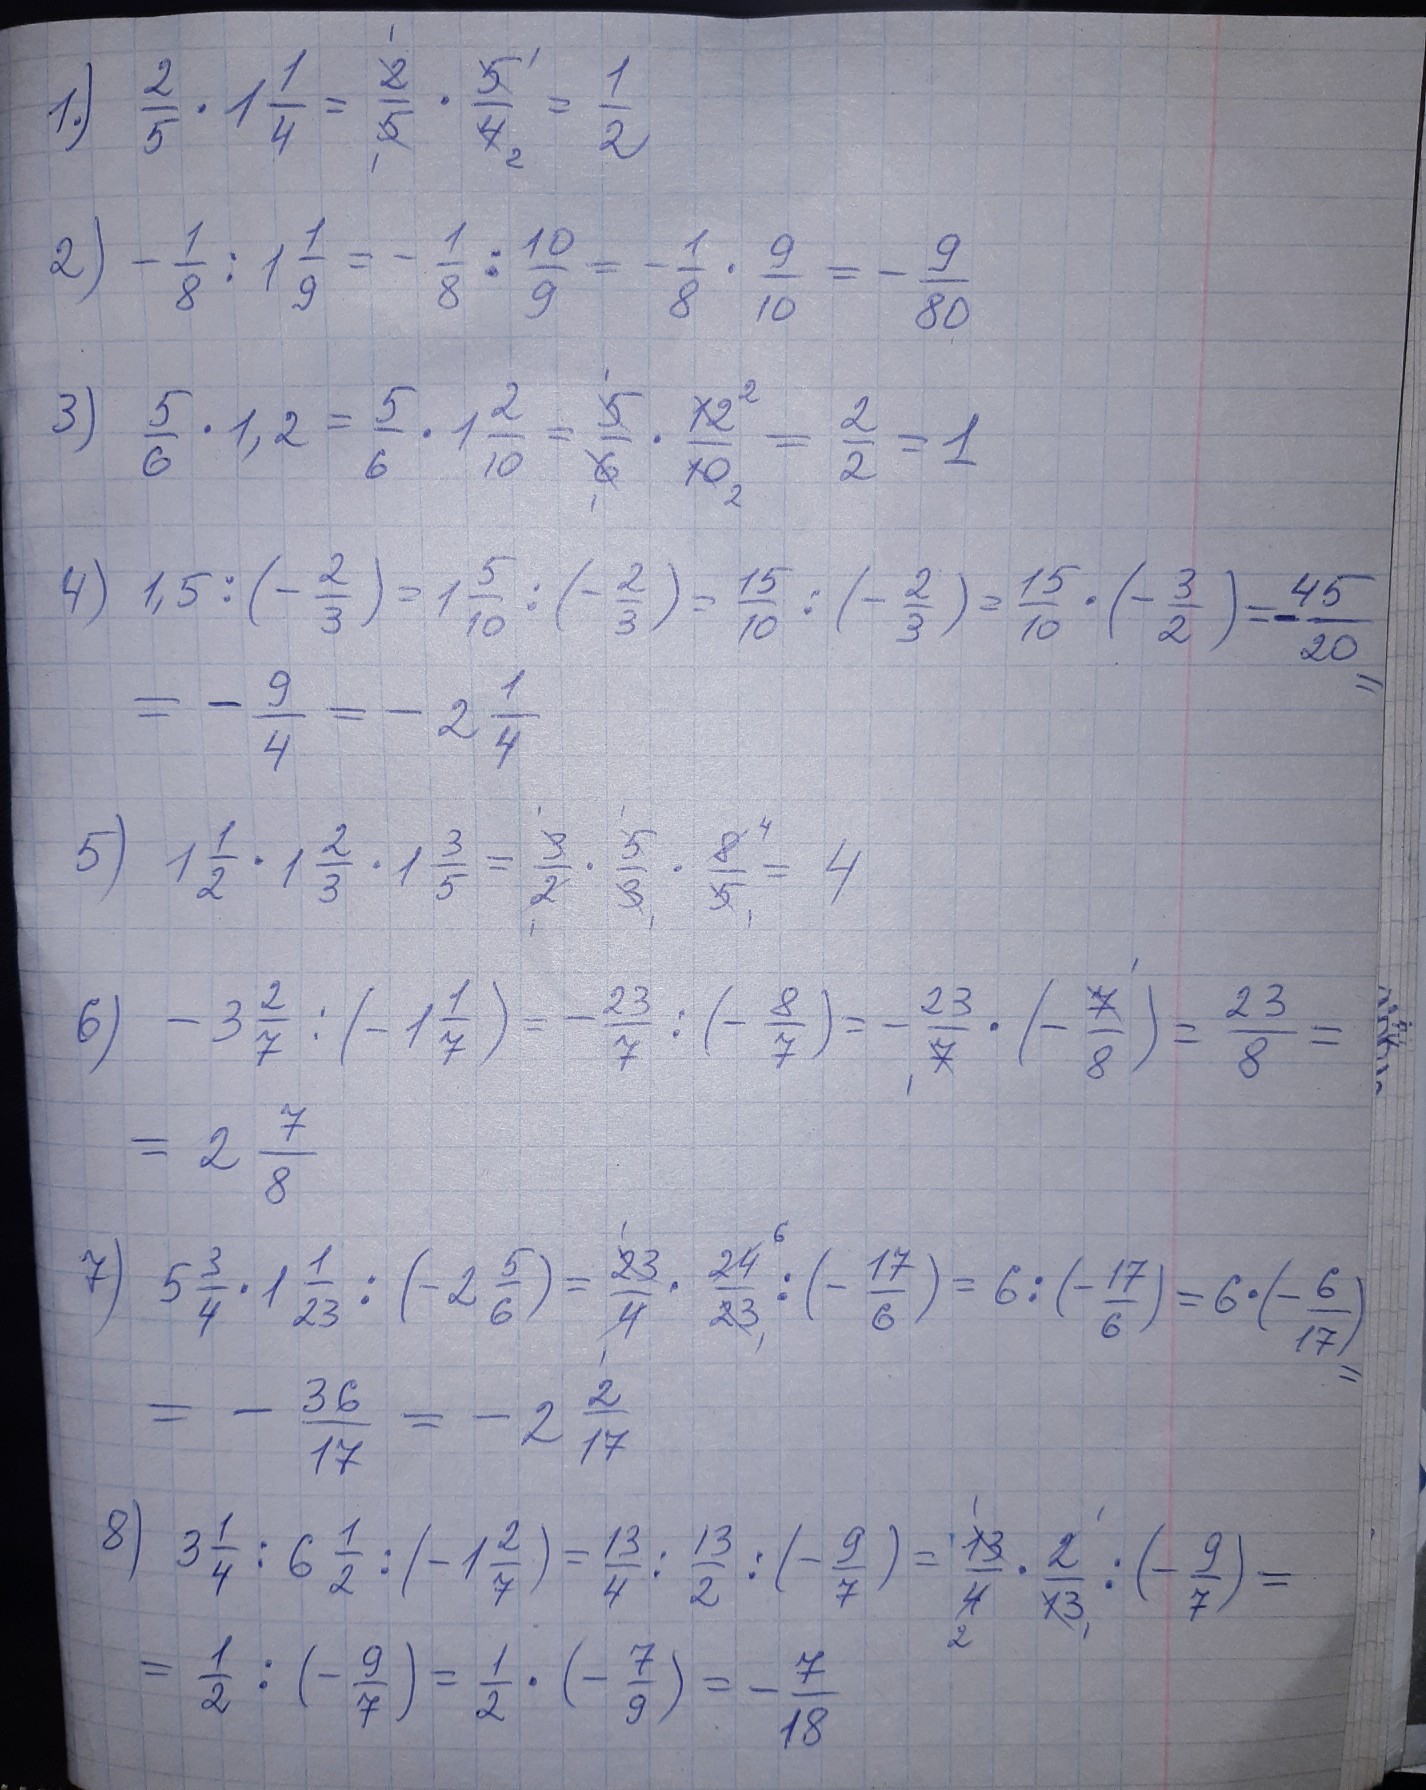 1.) 2/5 · 1 1/4 = 2/5 · 5/4 = 1/2
2) - 1/8 : 1 1/9 = - 1/8 : 10/9 = - 1/8 · 9/10 = - 9/80
3) 5/6 · 1,2 = 5/6 · 1 2/10 = 5/6 · 12/10 = 2/2 = 1
4) 1,5 : (- 2/3) = 1 5/10 : (- 2/3) = 15/10 : (- 2/3) = 15/10 · (- 3/2) = - 45/20 =
= - 9/4 = - 2 1/4
5) 1 1/2 · 1 2/3 · 1 3/5 = 3/2 · 5/3 · 8/5 = 4
6) - 3 2/7 : (- 1 1/7) = - 23/7 : (- 8/7) = - 23/7 · (- 7/8) = 23/8 =
= 2 7/8
7) 5 3/4 · 1 1/23 : (- 2 5/6) = 23/4 · 24/23 : (- 17/6) = 6 : (- 17/6) = 6 · (- 6/17) =
= - 36/17 = - 2 2/17
8) 3 1/4 : 6 1/2 : (- 1 2/7) = 13/4 : 13/2 : (- 9/7) = 13/4 · 2/13 : (- 9/7) =
= 1/2 : (- 9/7) = 1/2 · (- 7/9) = - 7/18